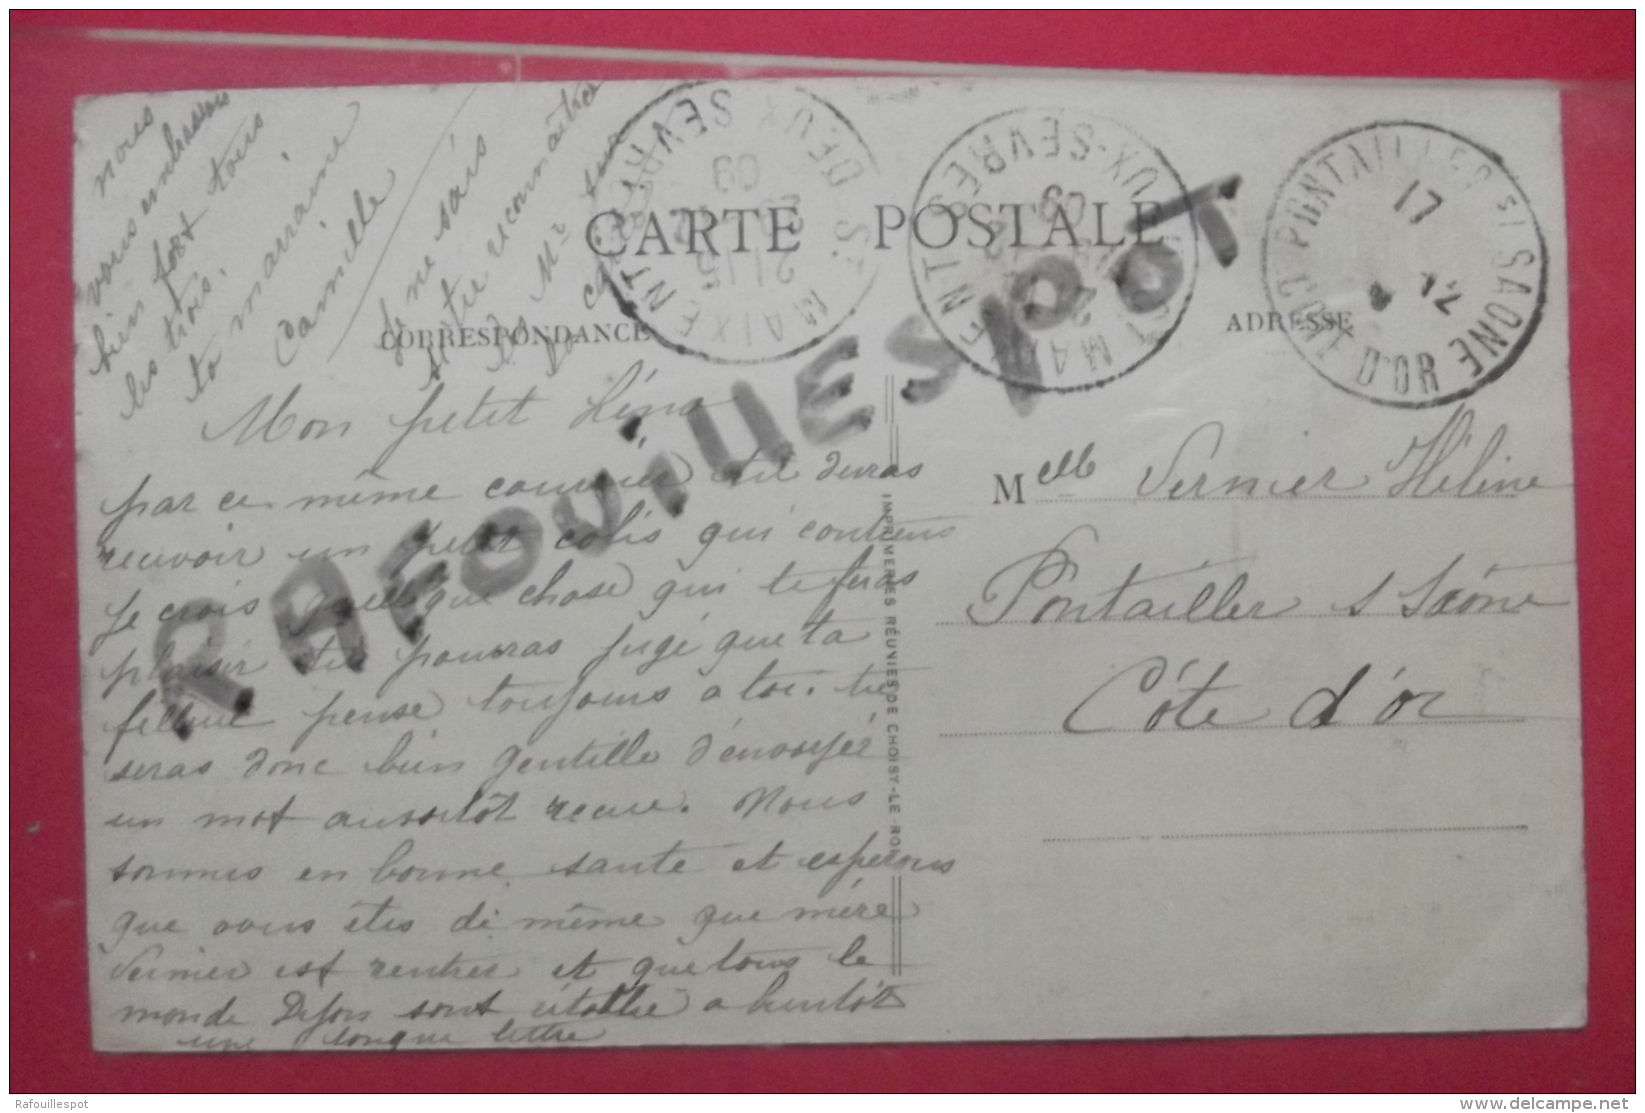 nous
vous embrassons
bien fort tous
les trois.
ta marraine
Camille
Je ne sais
si tu reconnaîtras
Mr sur
la carte
CARTE POSTALE
CORRESPONDANCE
ADRESSE
ST MAIXENT
DEUX SEVRES
21 15
09
ST MAIXENT
DEUX-SEVRES
09
PONTAILLER S/ SAONE
COTE D'OR
17
12
RAFOUILLESPOT
Mon petit Léna
par ce même courrier tu devras
recevoir un petit colis qui contiens
je crois quelque chose qui te feras
plaisir tu pourras jugé que ta
filleule pense toujours a toi. tu
seras donc bien gentille d'envoyér
un mot aussitôt recue. Nous
sommes en bonne santé et esperons
que vous êtes de même que mére
Vernier est rentrer et que tous le
monde Dijon sont rétablie a bientôt
une longue lettre
IMPRIMERIES RÉUNIES DE CHOISY-LE-ROI
Melle Vernier Héléne
Pontailler s Saône
Côte d'or
Rafouillespot
www.delcampe.net